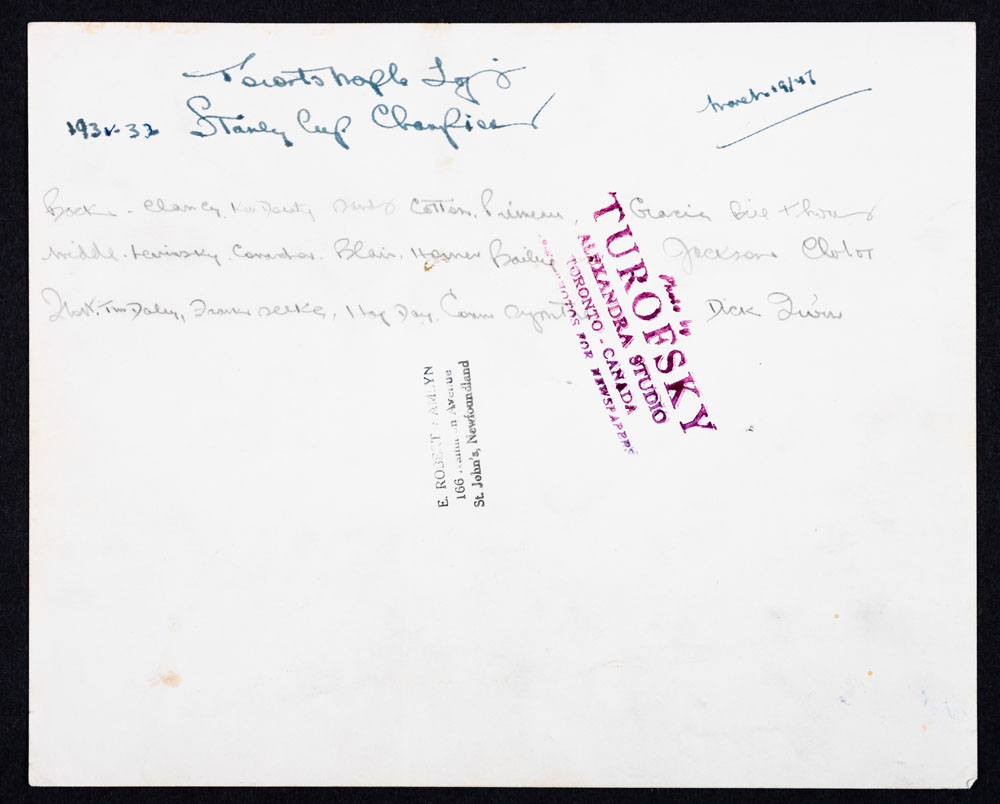 Toronto Maple Lf's
1931-32 Stanley Cup Champions
March 19/47
Back - Clancy, Ken Doraty Cotton, Primeau, Gracie, Bill Thoms
Middle. Levinsky, Conacher. Blair. Horner Bailey Jackson Chabot
Front. Tim Daley, Frank Selke, Hap Day, Conn Smythe Dick Irvin
Photo by
TUROFSKY
ALEXANDRA STUDIO
TORONTO - CANADA
PHOTOS FOR NEWSPAPERS
E. ROBERT
166 Avenue
St. John's, Newfoundland